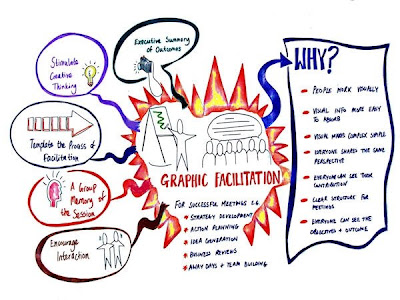 Executive Summary
of Outcomes
Stimulate
Creative
Thinking
Template the Process of
Facilitation
A Group
Memory of
the Session
Encourage
Interaction
GRAPHIC FACILITATION
FOR SUCCESSFUL MEETINGS E.G.
STRATEGY DEVELOPMENT
ACTION PLANNING
IDEA GENERATION
BUSINESS REVIEWS
AWAY DAYS + TEAM BUILDING
WHY?
PEOPLE WORK VISUALLY
VISUAL INFO MORE EASY
TO ABSORB
VISUAL MAKES COMPLEX SIMPLE
EVERYONE SHARES THE SAME
PERSPECTIVE
EVERYONE CAN SEE THEIR
CONTRIBUTION
CLEAR STRUCTURE FOR
MEETINGS
EVERYONE CAN SEE THE
OBJECTIVES + OUTCOME